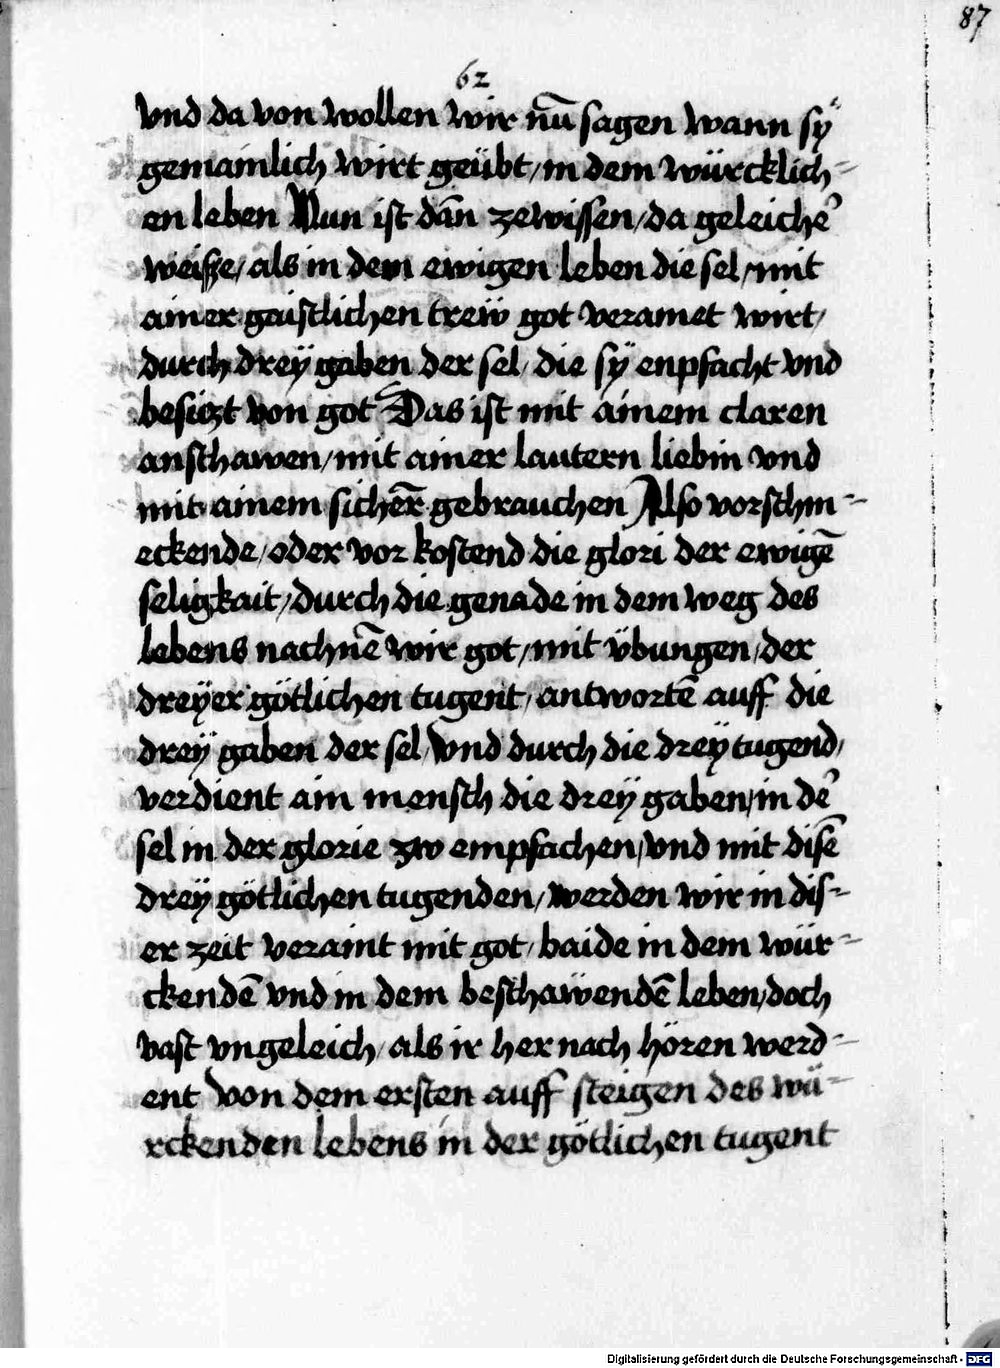 87
62
vnd da von wollen wir nū sagen wann sÿ
gemainlich wirt geübt / in dem würcklich-
en leben Nun ist dan̄ ze wissen / da geleicheʾ
weisse / als in dem ewigen leben die sel / mit
ainer gaistlichen treẅ got veramet wirt /
durch dreÿ gaben der sel / die sÿ enpfacht vnd
besiczt von got Das ist mit ainem claren
anschawen / mit ainer lautern liebin vnd
mit ainem sicher̄ gebrauchen Also vorschm-
eckende / oder vor kostend die glori der ewigē
seligkait / durch die genade in dem weg des
lebens nachnē wir got / mit übungen / der
dreÿer götlichen tugent / antwortē auff die
dreÿ gaben der sel / vnd durch die dreÿ tugend /
verdient ain mensch die dreÿ gaben / in deʾ
sel in der glorie zw empfachen / vnd mit disē
dreÿ götlichen tugenden / werden wir in dis-
er zeit veraint mit got / baide in dem wür-
ckendē vnd in dem beschaẅendē leben / doch
vast vngeleich / als ir her nach hören werd-
ent Von dem ersten auff steigen des wü-
rckenden lebens in der götlichen tugent
Digitalisierung gefördert durch die Deutsche Forschungsgemeinschaft - DFG